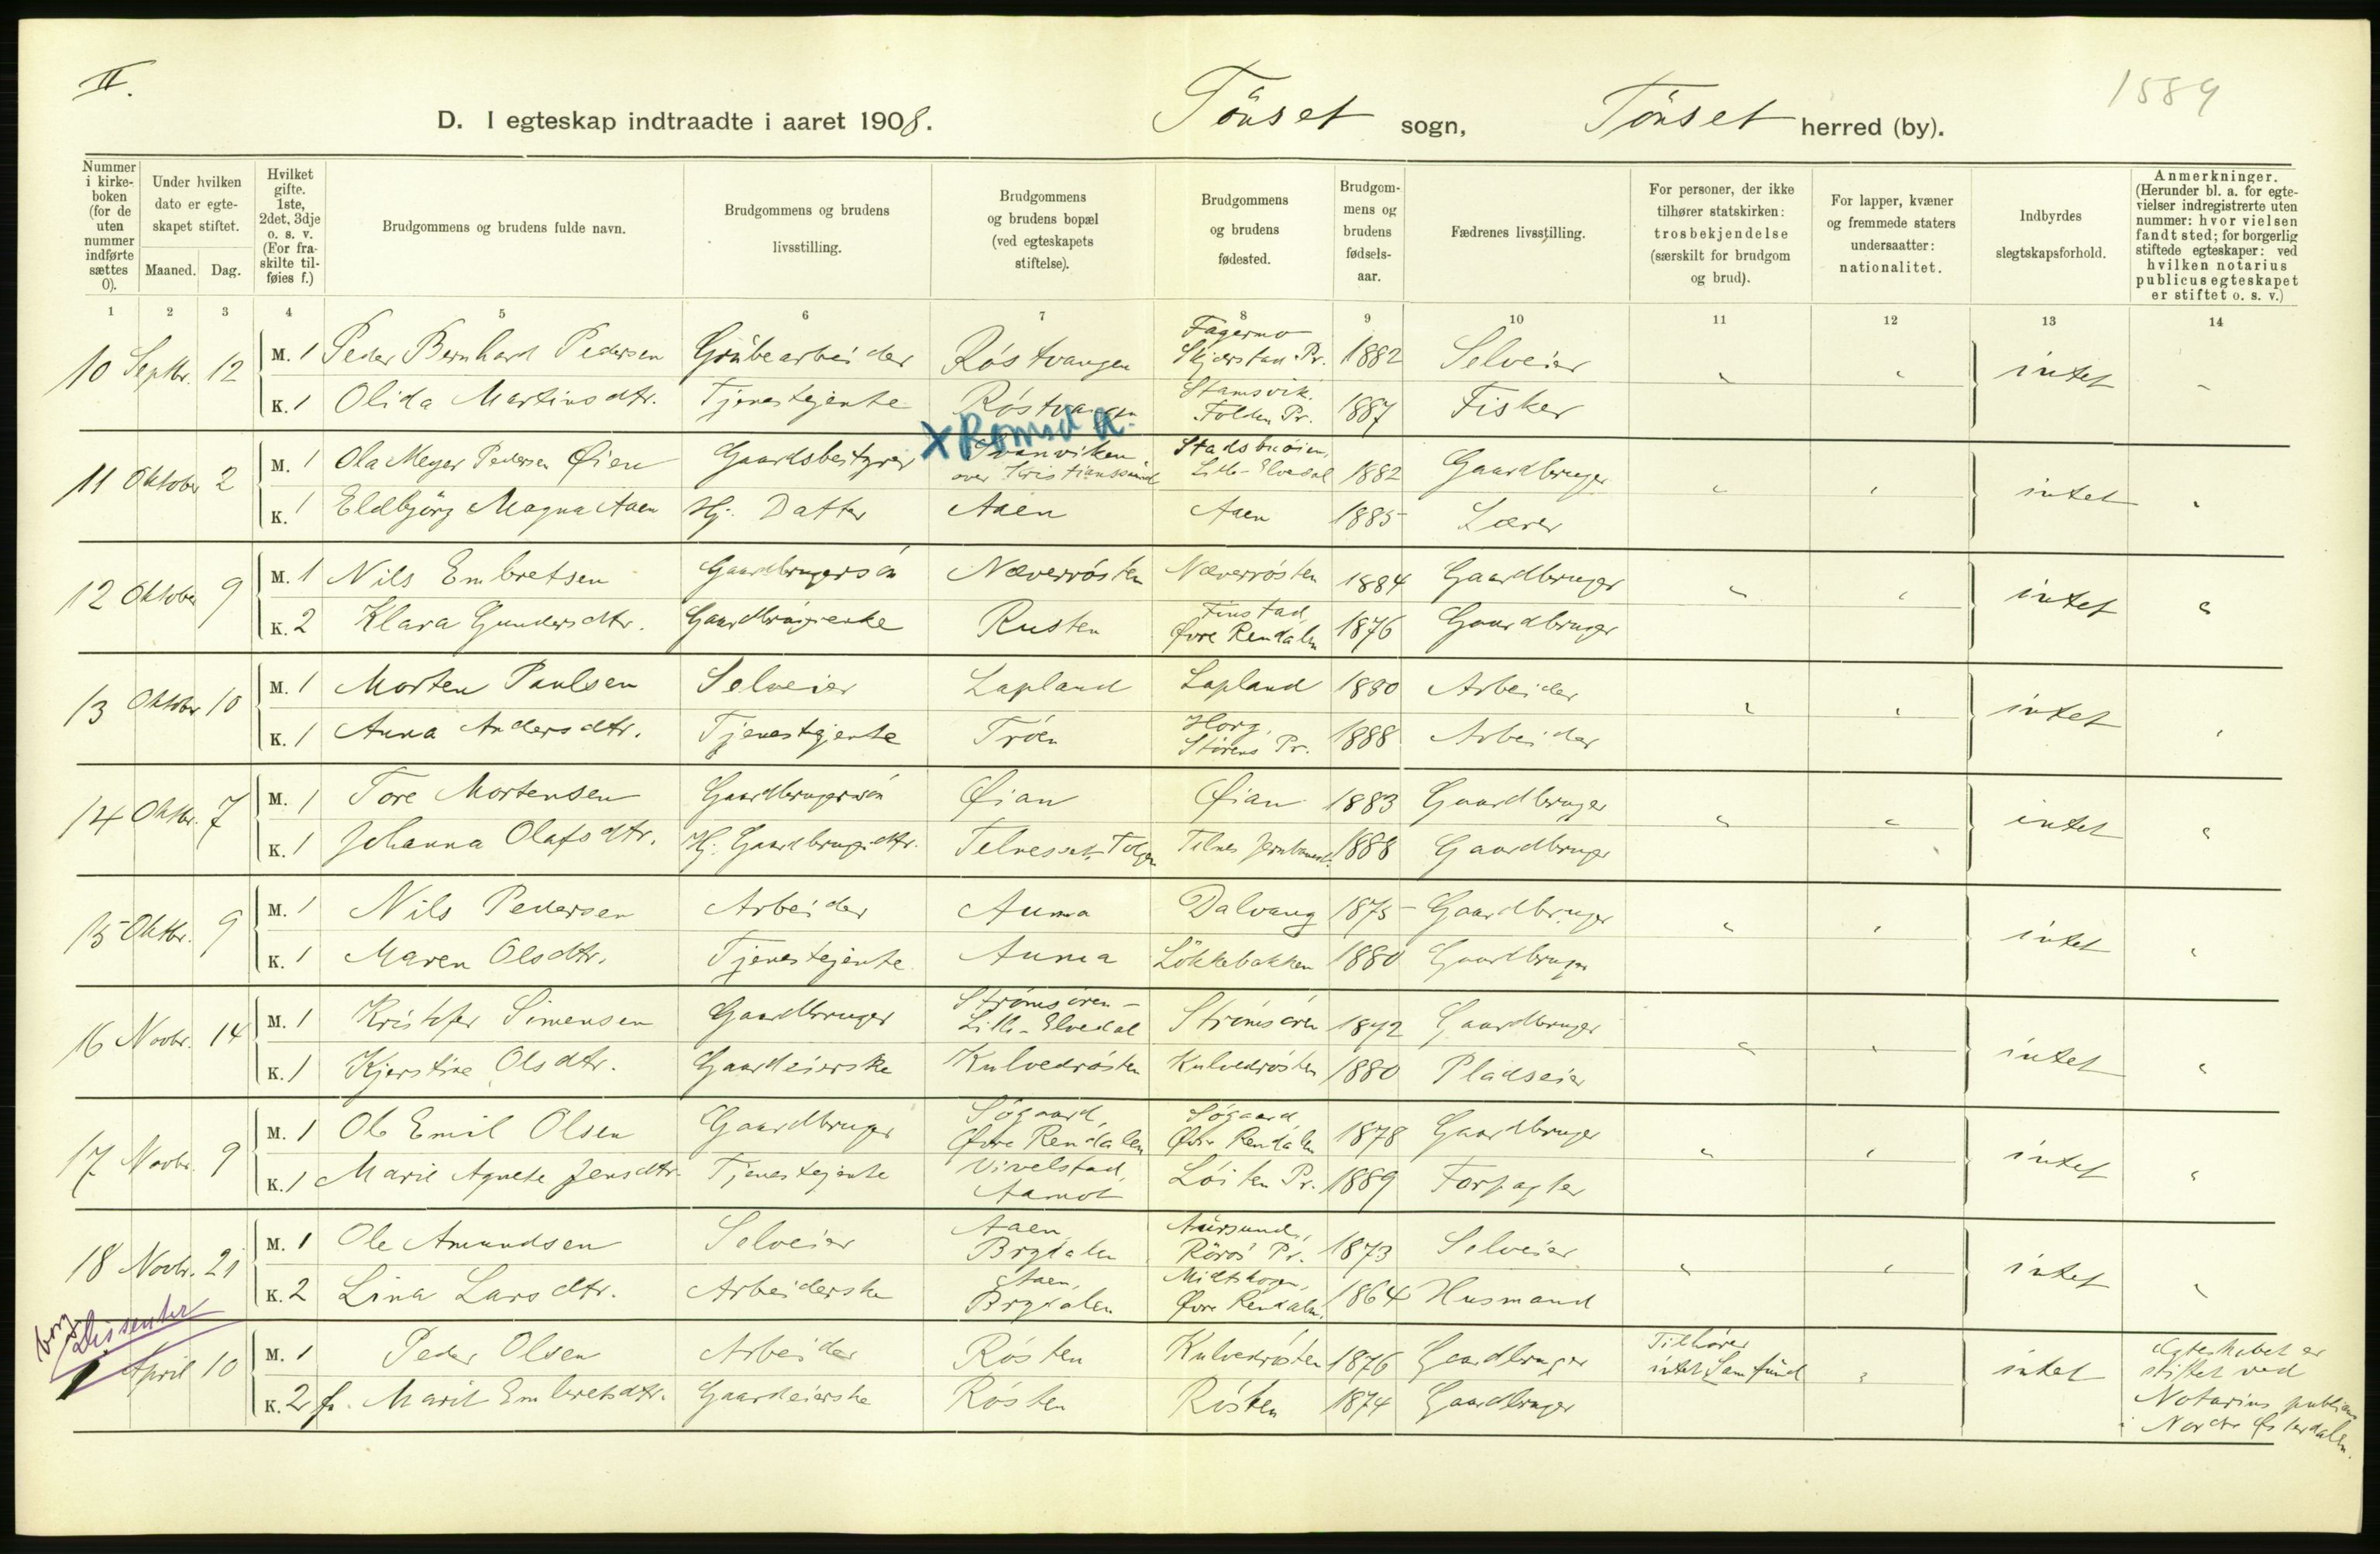 II.
1589
D. I egteskap indtraadte i aaret 1908. Tönset sogn, Tönset herred (by).
Nummer i kirkeboken (for de uten nummer indførte sættes 0).
Under hvilken dato er egteskapet stiftet.
Maaned. Dag.
Hvilket gifte. 1ste, 2det, 3dje o. s. v. (For fraskilte tilføies f.)
Brudgommens og brudens fulde navn.
Brudgommens og brudens livsstilling.
Brudgommens og brudens bopæl (ved egteskapets stiftelse).
Brudgommens og brudens fødested.
Brudgommens og brudens fødselsaar.
Fædrenes livsstilling.
For personer, der ikke tilhører statskirken: trosbekjendelse (særskilt for brudgom og brud).
For lapper, kvæner og fremmede staters undersaatter: nationalitet.
Indbyrdes slegtskapsforhold.
Anmerkninger. (Herunder bl. a. for egtevielser indregistrerte uten nummer: hvor vielsen fandt sted; for borgerlig stiftede egteskaper: ved hvilken notarius publicus egteskapet er stiftet o. s. v.)
1 2 3 4 5 6 7 8 9 10 11 12 13 14
10 Septbr. 12 M. 1 Peder Bernhard Pedersen Grübearbeider Röstvangen Fagermo Skjerstad Pr. 1882 Selveier " " intet "
K. 1 Olida Martinsdtr. Tjenestejente Röstvangen Stamsvik. Folden Pr. 1887 Fisker
X Romsd A.
11 Oktober 2 M. 1 Ola Meyer Pedersen Øien Gaardsbestyrer Svanviken over Kristianssund Stadsbuøien, Lille-Elvedal 1882 Gaardbruger " " intet "
K. 1 Eldbjörg Magna Aaen Hj. Datter Aaen Aaen 1885 Lærer
12 Oktober 9 M. 1 Nils Embretsen Gaardbrugersön Næverrösten Næverrösten 1884 Gaardbruger " " intet "
K. 2 Klara Gundersdtr. Gaardbrugerenke Rusten Finstad, Øvre Rendalen 1876 Gaardbruger
13 Oktober 10 M. 1 Morten Paulsen Selveier Lapland Lapland 1880 Arbeider " " intet "
K. 1 Anna Andersdtr. Tjenestejente Tröen Horg, Störens Pr. 1888 Arbeider
14 Oktbr. 7 M. 1 Tore Mortensen Gaardbrugersön Øian Øian 1883 Gaardbruger " " intet "
K. 1 Johanna Olafsdtr. Hj. Gaardbrugerdtr. Telneset Tolgen Telnes Jernbanest. 1888 Gaardbruger
15 Oktbr. 9 M. 1 Nils Pedersen Arbeider Auma Dalvang 1875 Gaardbruger " " intet "
K. 1 Maren Olsdtr. Tjenestejente Auma Lökkebakken 1880 Gaardbruger
16 Novbr. 14 M. 1 Kristofer Simensen Gaardbruger Strömsören - Lille-Elvedal Strömsören 1872 Gaardbruger " " intet "
K. 1 Kjerstine Olsdtr. Gaardeierske Kulvedrösten Kulvedrösten 1880 Pladseier
17 Novbr. 9 M. 1 Ole Emil Olsen Gaardbruger Søgaard, Øvre Rendalen Søgaard, Øvre Rendalen 1878 Gaardbruger " " intet "
K. 1 Marie Agnete Jensdtr. Tjenestejente Vivelstad, Aamot Löiten Pr. 1889 Forpagter
18 Novbr. 21 M. 1 Ole Amundsen Selveier Aaen, Brydalen Aursund, Röros Pr. 1873 Selveier " " intet "
K. 2 Lina Larsdtr. Arbeiderske Aaen, Brydalen Midtskogen, Øvre Rendalen 1864 Husmand
borg. Dissenter
1 April 10 M. 1 Peder Olsen Arbeider Rösten Kulvedrösten 1876 Gaardbruger Tilhører intet Samfund " intet Egteskabet er stiftet ved Notarius publicus i Nordre Østerdalen.
K. 2 f. Marit Embretsdtr. Gaardeierske Rösten Rösten 1874 Gaardbruger